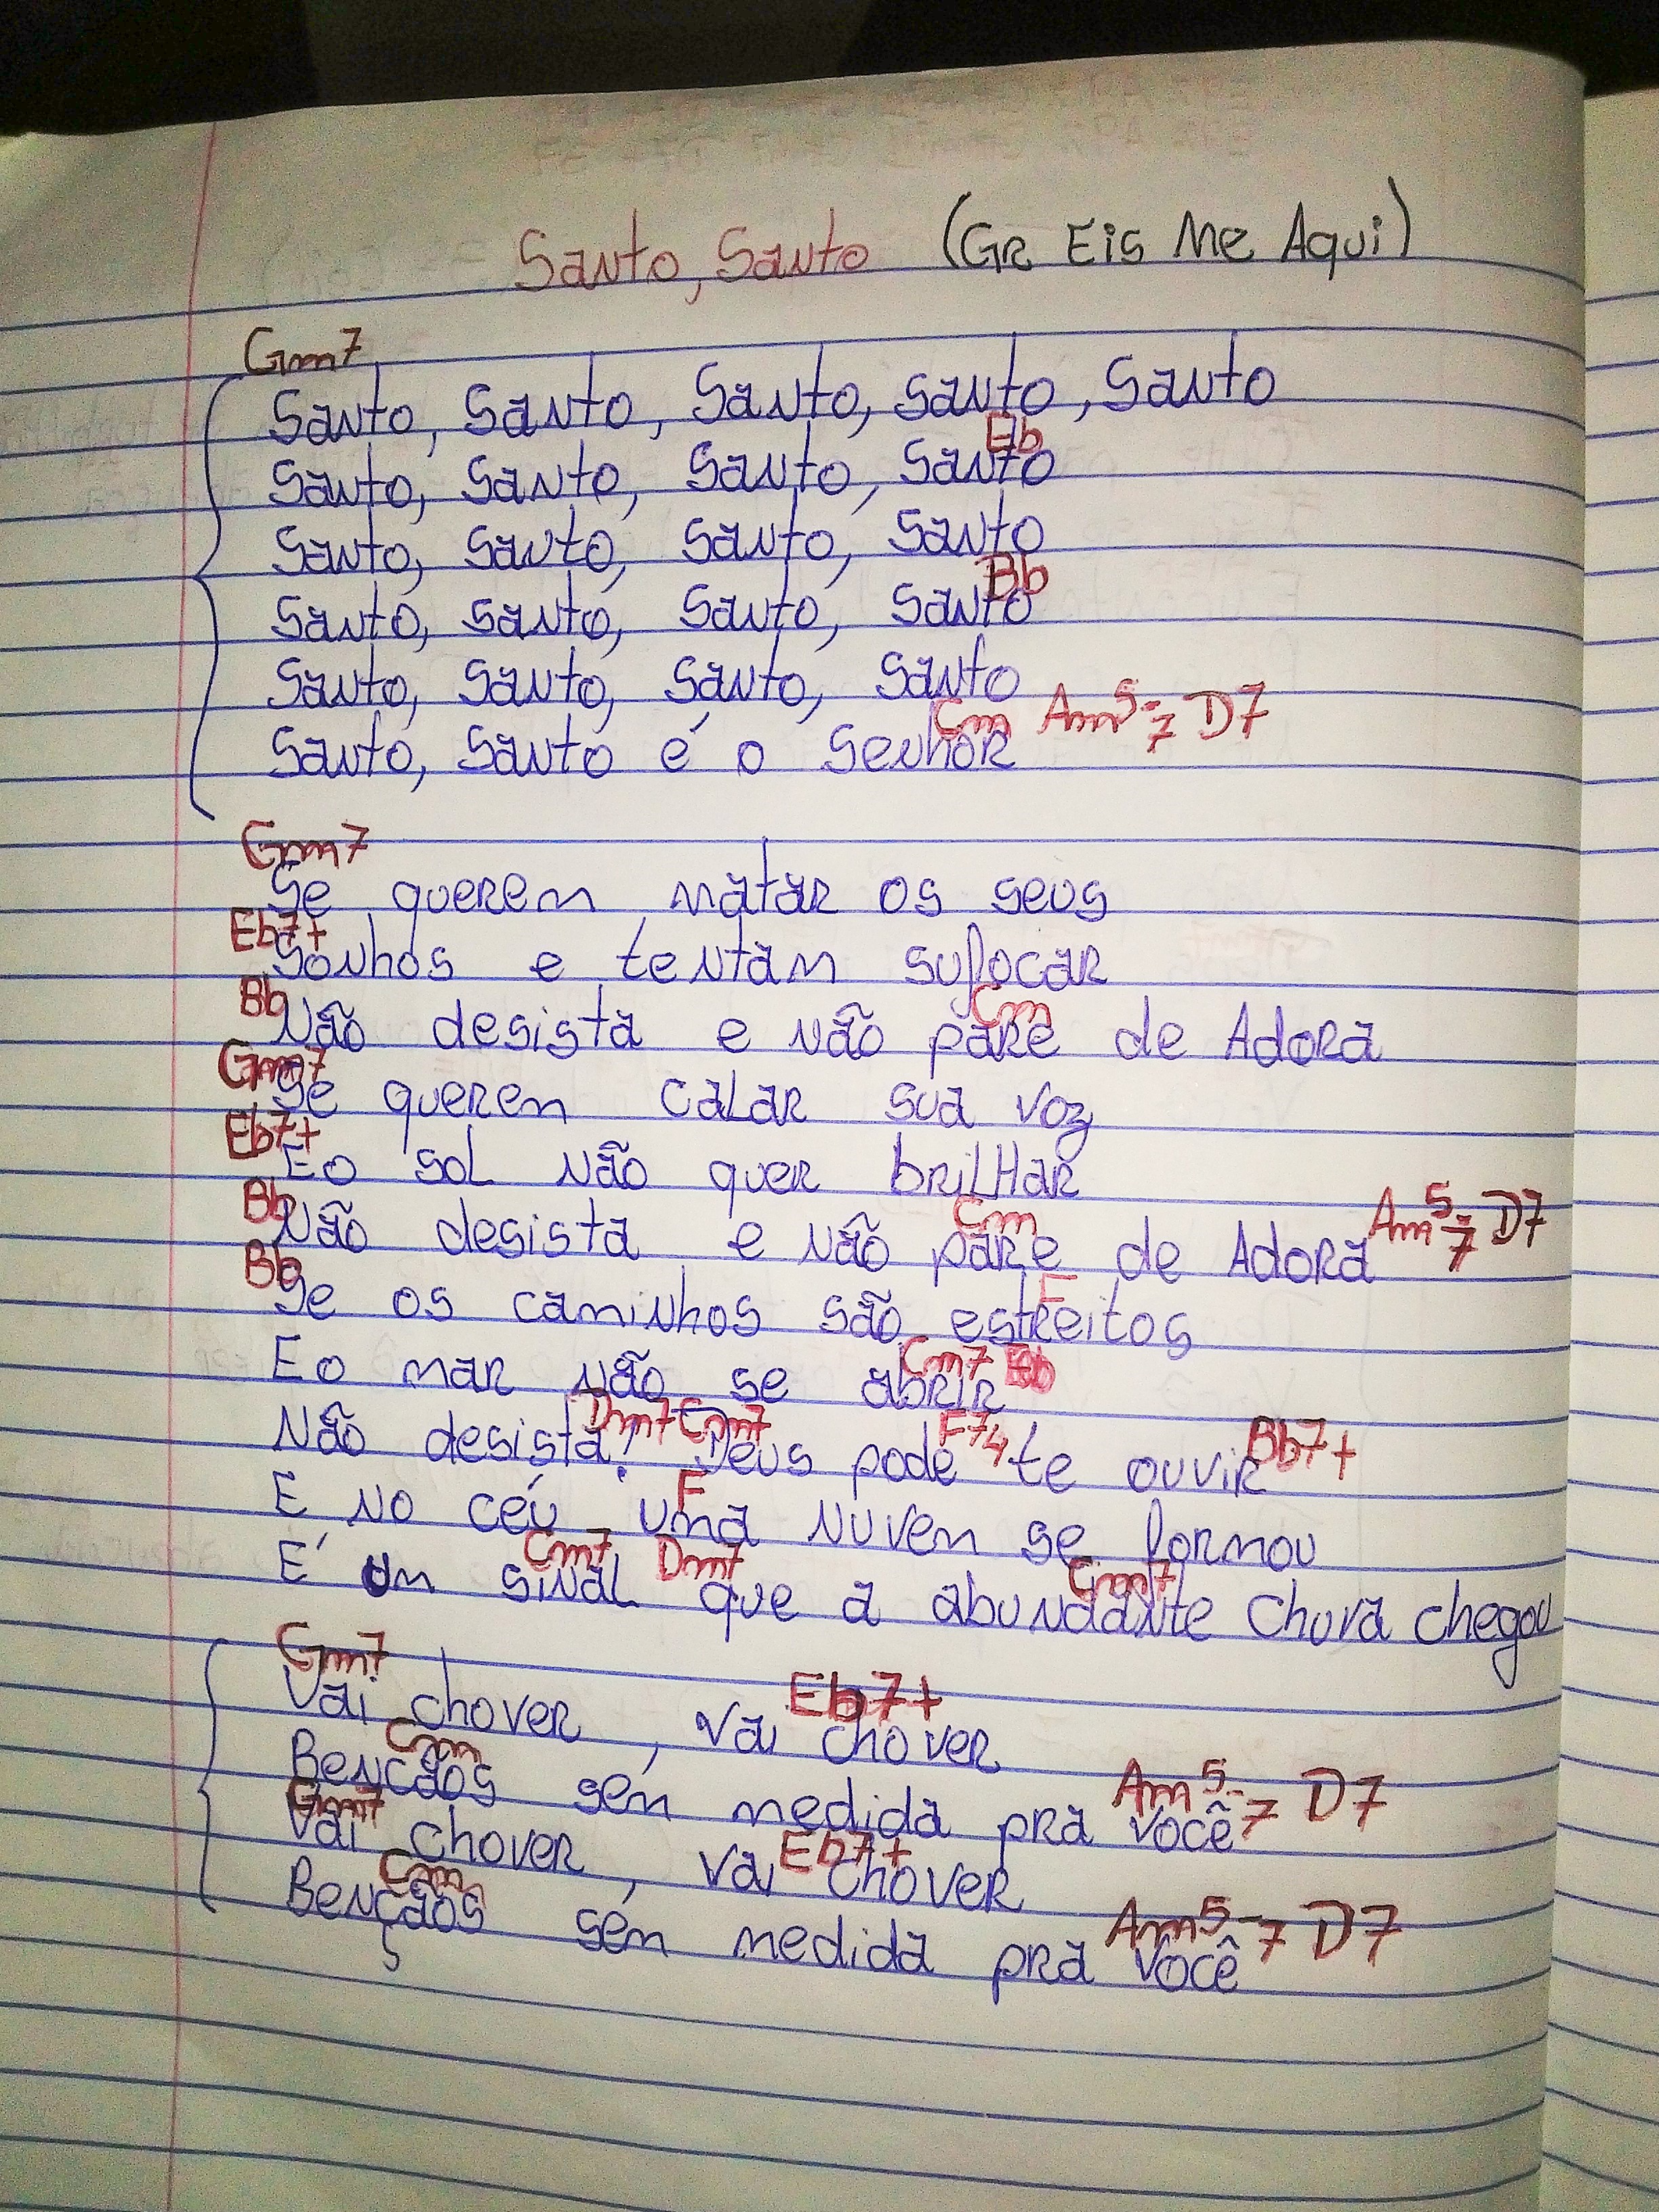 Santo, Santo (Gr Eis Me Aqui)
Gm7
Santo, Santo, Santo, Santo, Santo
Eb
Santo, Santo, Santo, Santo
Santo, Santo, Santo, Santo
Bb
Santo, Santo, Santo, Santo
Santo, Santo, Santo, Santo
Cm Am5-7 D7
Santo, Santo é o Senhor
Gm7
Se querem matar os seus
Eb7+
Sonhos e tentam sufocar
Bb Cm
Não desista e não pare de Adora
Gm7
Se querem calar sua voz
Eb7+
E o sol não quer brilhar
Bb Cm Am5-7 D7
Não desista e não pare de Adora
Bb F
Se os caminhos são estreitos
Cm7 Eb
E o mar não se abrir
Dm7 Cm7 F74 Bb7+
Não desista! Deus pode te ouvir
F
E no céu uma nuvem se formou
Cm7 Dm7 Gm7
É um sinal que a abundante chuva chegou
Gm7 Eb7+
Vai chover, vai chover
Cm Am5-7 D7
Bençãos sem medida pra você
Gm7 Eb7+
Vai chover, vai chover
Cm Am5-7 D7
Bençãos sem medida pra você